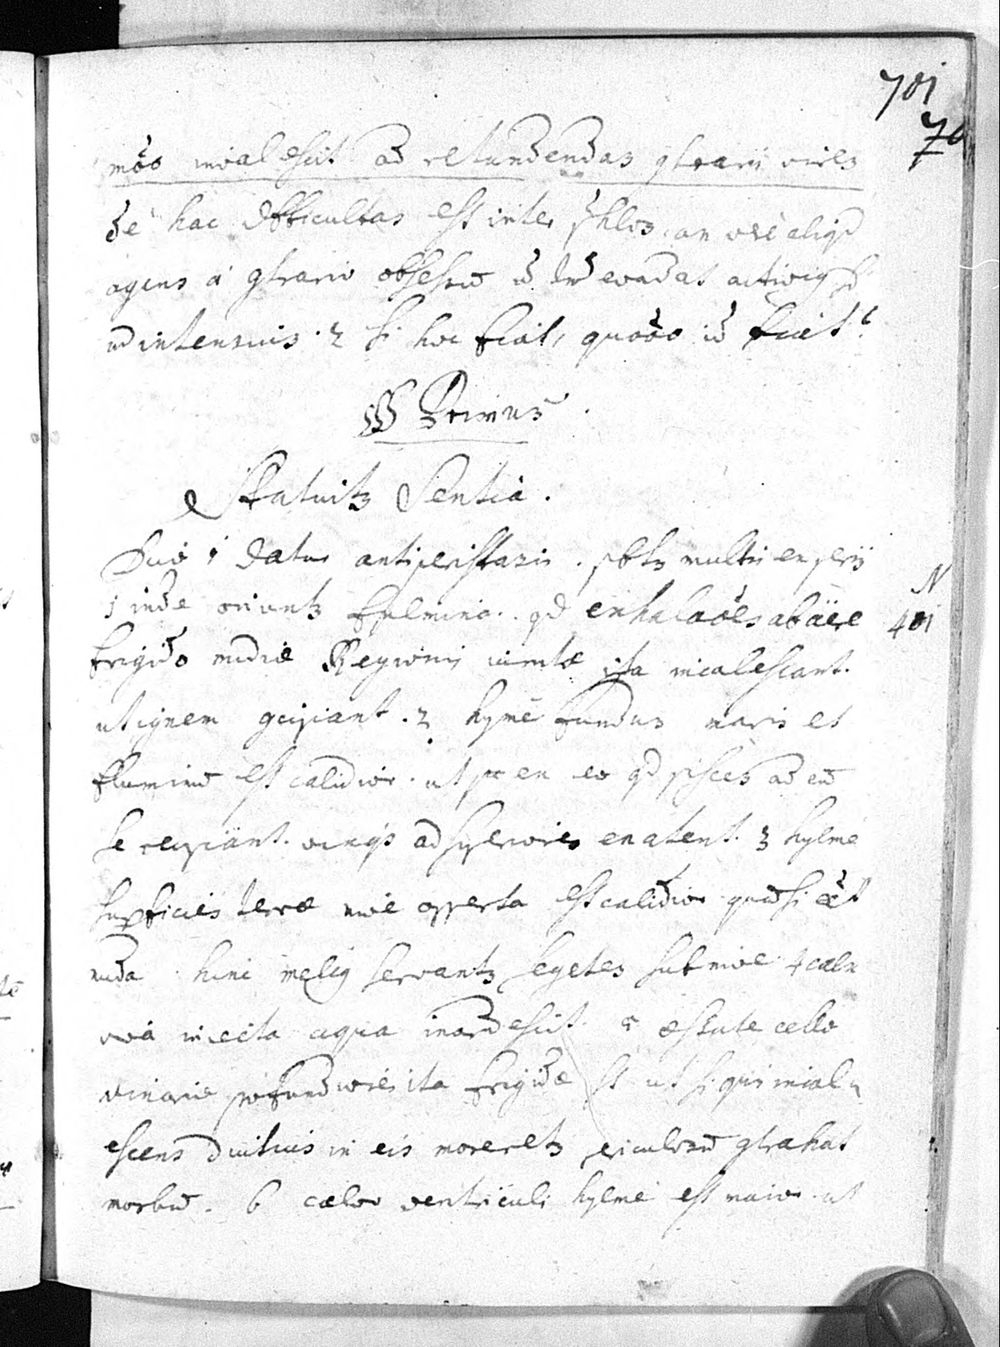 701
70
mo͂o invalescit ad retundendas gtrarii vires
de hac difficultas est inter an vere aliqd
agens a gtrario obsessu evadat
ad intensius. 2 si hoc fiat, quomo id fiat?
§ Primus
Statuitz Sentia.
Dico 1 datur antiperistasis. pbtz multis experys
1 inde oriuntz fulmina. qd exhalaoes ab aëre N
frigido mediæ Regionis ita incalescant. 401
ut ignem gcipiant. 2 hyme fundus maris et
fluminu est calidior. ut ptt ex eo qd pisces ad eu
se recipiant. vixqs ad superiores enatent. 3 hyeme
supficies terræ nive opperta est calidior quasi eet
nuda. hinc melig servantz segetes sub nive. 4 calx
viva iniecta aqua inardescit. 5 æstate cellæ
vinariæ pofundiores ita frigidæ st ut si quis incal
escens diutius in eis moreretz piculosu gtrahat
morbu. 6 calor ventriculi hyeme est maior. ut